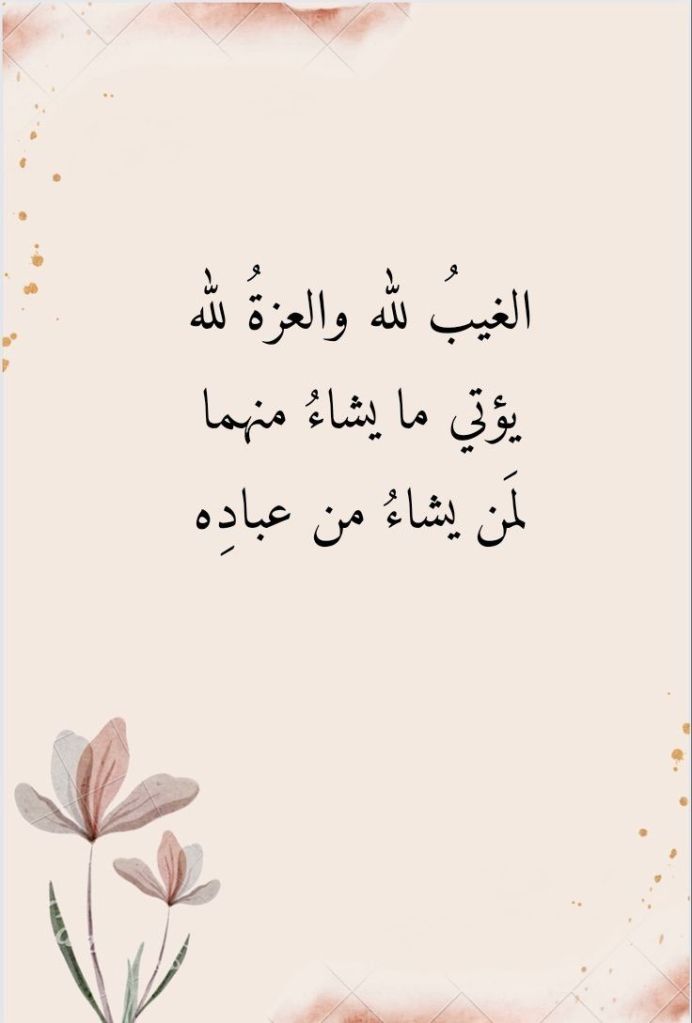 الغيبُ لله والعزةُ لله
يؤتي ما يشاءُ منهما
لمَن يشاءُ من عبادِه